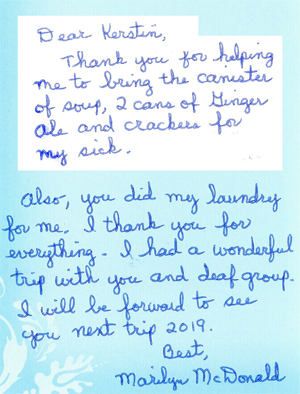 Dear Kerstin,
Thank you for helping
me to bring the canister
of soup, 2 cans of Ginger
Ale and crackers for
my sick.
Also, you did my laundry
for me. I thank you for
everything. I had a wonderful
trip with you and deaf group.
I will be forward to see
you next trip 2019.
Best,
Marilyn McDonald